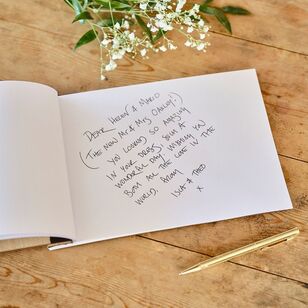 DEAR HELEN & MARIO
(THE NEW MR & MRS OAKLEY!)
YOU LOOKED SO AMAZING
IN YOUR DRESS, SUCH A
WONDERFUL DAY. WISHING YOU
BOTH ALL THE LOVE IN THE
WORLD, ALWAY
ISLA & THEO
X